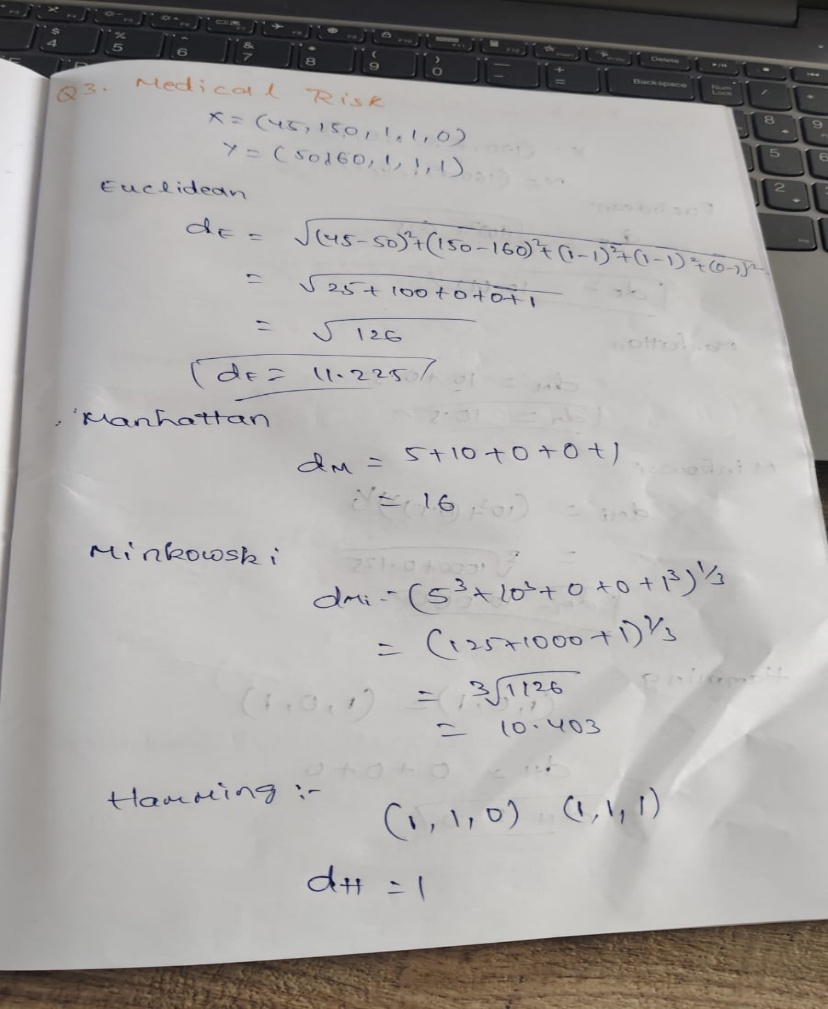 Q3. Medical Risk
X = (45, 150, 1, 1, 0)
Y = (50160, 1, 1, 1)
Euclidean
dE = √(45-50)²+(150-160)²+(1-1)²+(1-1)²+(0-1)²
= √25+100+0+0+1
= √126
dE = 11.225
Manhattan
dM = 5+10+0+0+1
= 16
Minkowski
dMi = (5³+10³+0+0+1³)^1/3
= (125+1000+1)^1/3
= 3√1126
= 10.403
Hamming :-
(1, 1, 0) (1, 1, 1)
dH = 1